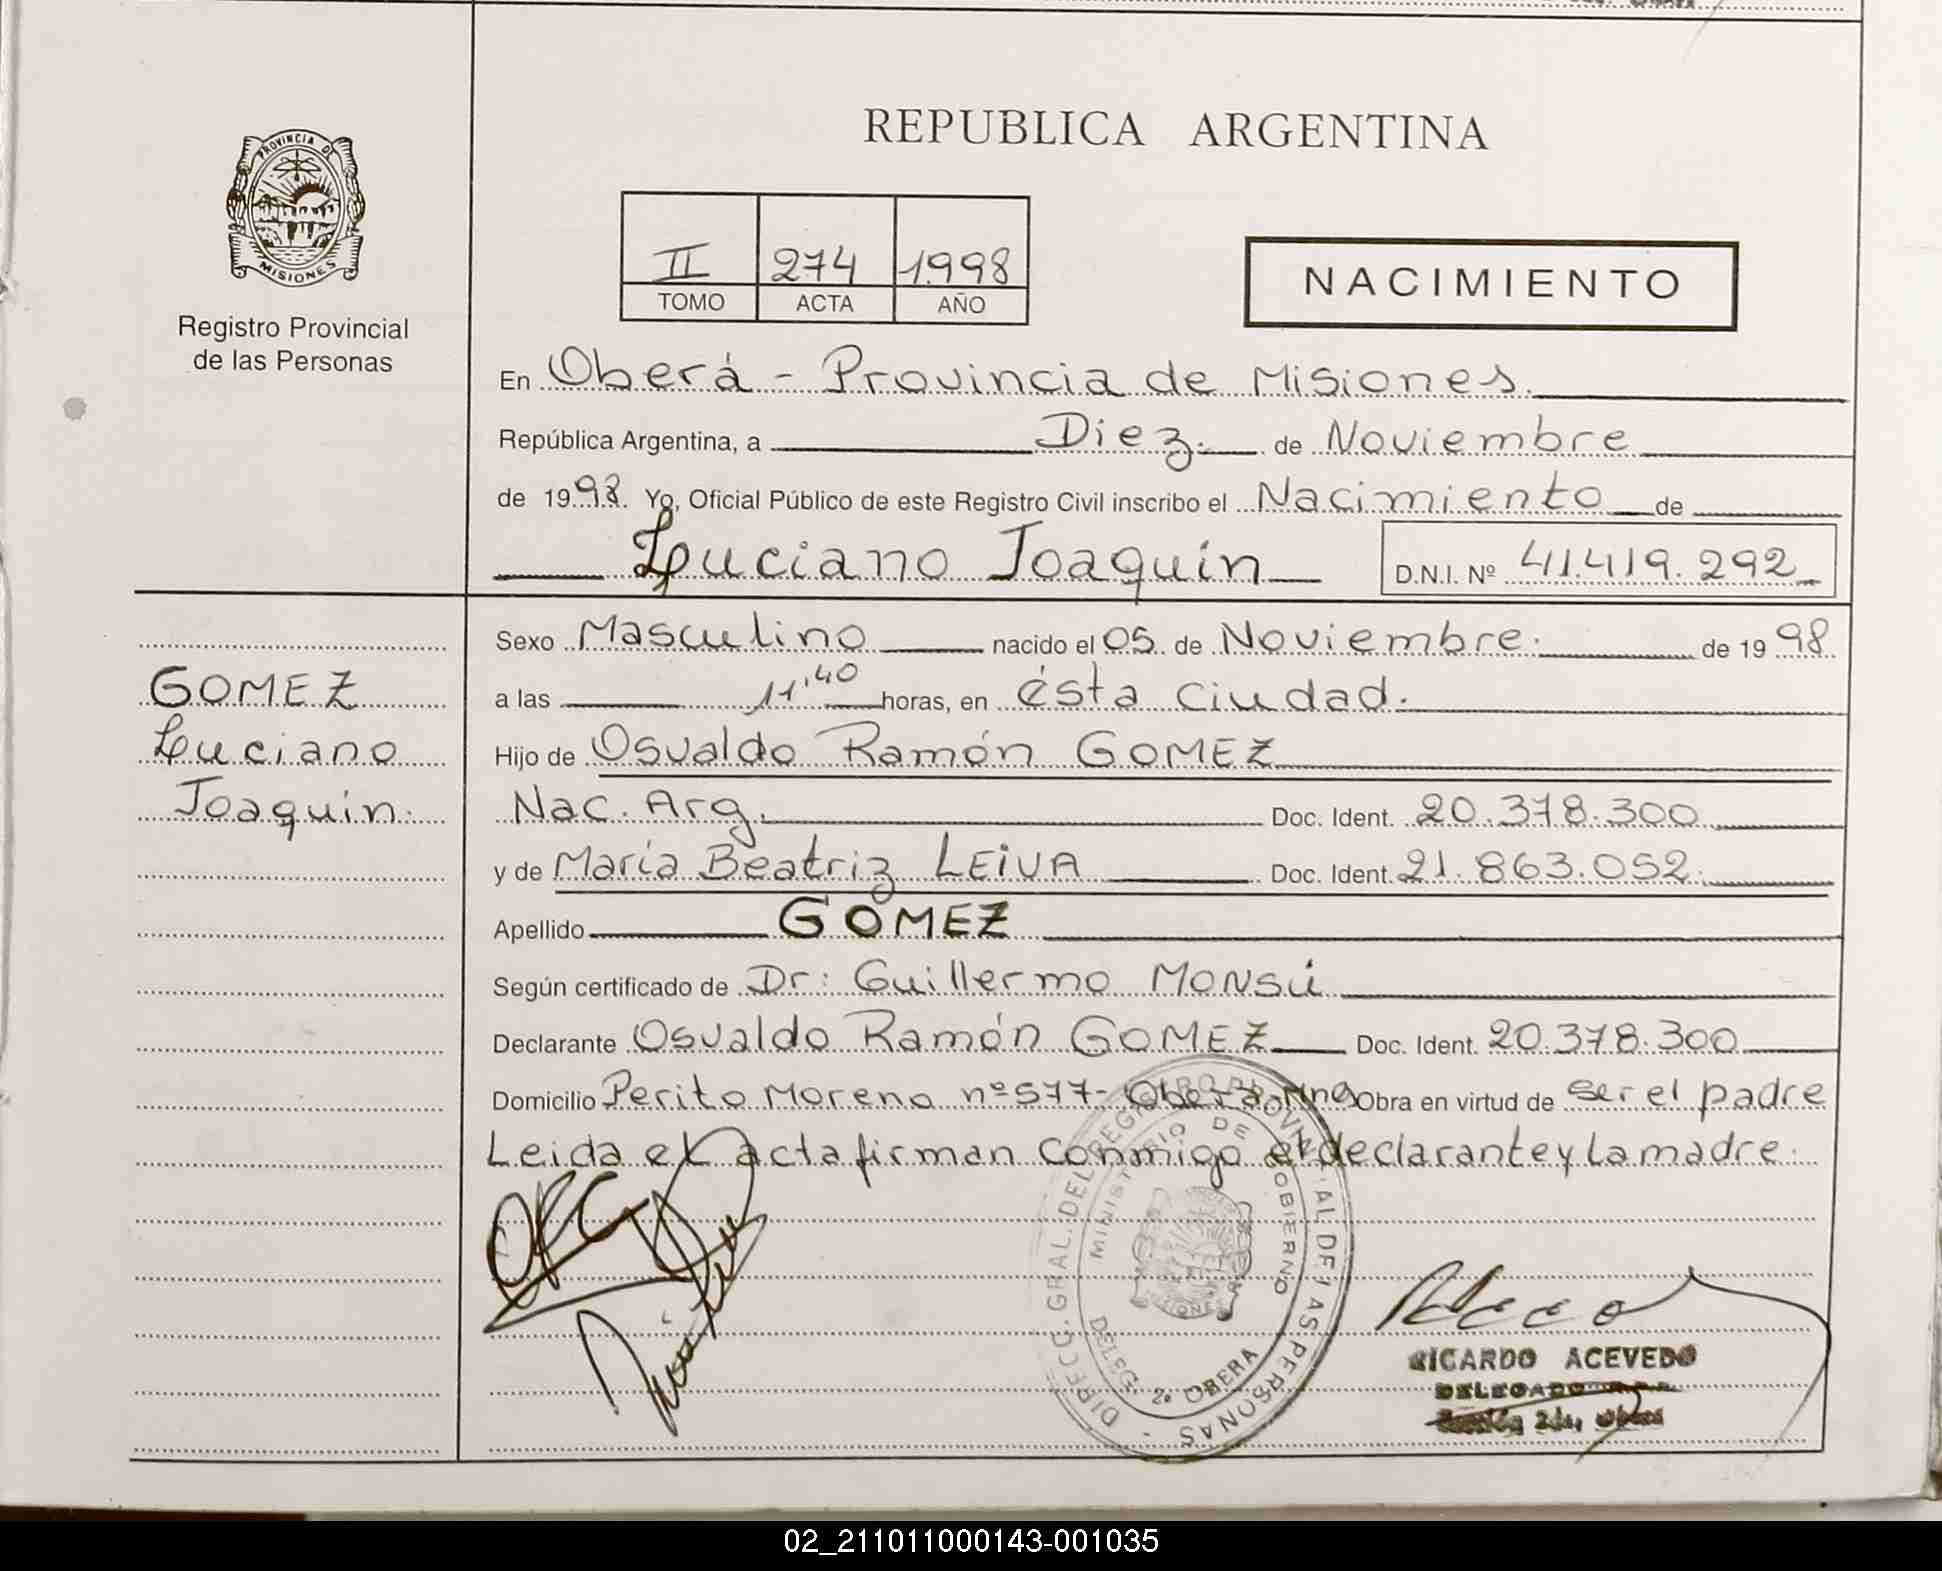 REPUBLICA ARGENTINA
PROVINCIA DE
MISIONES
Registro Provincial
de las Personas
II 274 1.998
TOMO ACTA AÑO
NACIMIENTO
En Oberá - Provincia de Misiones.
República Argentina, a Diez.- de Noviembre
de 1998. Yo, Oficial Público de este Registro Civil inscribo el Nacimiento de
Luciano Joaquin D.N.I. Nº 41.419.292
Sexo Masculino nacido el 05 de Noviembre. de 1998.
GOMEZ
Luciano
Joaquin.
a las 11'40 horas, en ésta Ciudad.
Hijo de Osvaldo Ramón GOMEZ
Nac. Arg. Doc. Ident. 20.378.300
y de María Beatriz LEIVA Doc. Ident. 21.863.052.
Apellido GOMEZ
Según certificado de Dr: Guillermo MONSÚ
Declarante Osvaldo Ramón GOMEZ Doc. Ident. 20.378.300
Domicilio Perito Moreno nº 577- Oberá Mnes Obra en virtud de ser el padre
Leida el acta firman conmigo el declarante y la madre.
DIRECC. GRAL. DEL REGISTRO PROVINCIAL DE LAS PERSONAS -
MINISTERIO DE GOBIERNO
DELEG. 2º OBERA
RICARDO ACEVEDO
DELEGADO
02_211011000143-001035